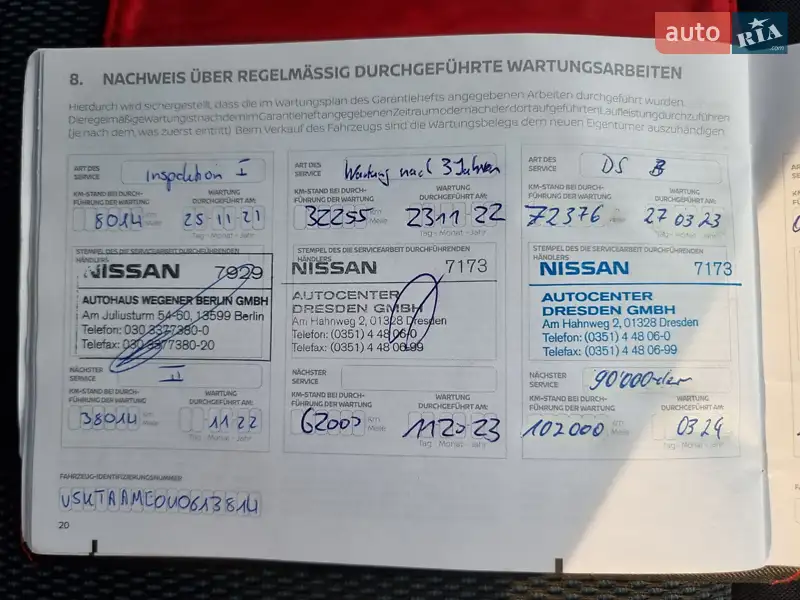 auto RIA .com
8. NACHWEIS ÜBER REGELMÄSSIG DURCHGEFÜHRTE WARTUNGSARBEITEN
Hierdurch wird sichergestellt, dass die im Wartungsplan des Garantiehefts angegebenen Arbeiten durchgeführt wurden.
Die regelmäßige Wartung ist nach dem im Garantieheft angegebenen Zeitraum oder nach der dort aufgeführten Laufleistung durchzuführen
(je nach dem, was zuerst eintritt). Beim Verkauf des Fahrzeugs sind die Wartungsbelege dem neuen Eigentümer auszuhändigen.
ART DES SERVICE
Inspektion I
KM-STAND BEI DURCHFÜHRUNG DER WARTUNG
WARTUNG DURCHGEFÜHRT AM:
8014 km Meile
25 11 21
Tag - Monat - Jahr
STEMPEL DES DIE SERVICEARBEIT DURCHFÜHRENDEN HÄNDLERS
NISSAN 7929
AUTOHAUS WEGENER BERLIN GMBH
Am Juliusturm 54-60, 13599 Berlin
Telefon: 030 3377380-0
Telefax: 030 3377380-20
NÄCHSTER SERVICE
II
KM-STAND BEI DURCHFÜHRUNG DER WARTUNG
WARTUNG DURCHGEFÜHRT AM:
38014 km Meile
11 22
Tag - Monat - Jahr
ART DES SERVICE
Wartung nach 3 Jahren
KM-STAND BEI DURCHFÜHRUNG DER WARTUNG
WARTUNG DURCHGEFÜHRT AM:
32255 km Meile
23 11 22
Tag - Monat - Jahr
STEMPEL DES DIE SERVICEARBEIT DURCHFÜHRENDEN HÄNDLERS
NISSAN 7173
AUTOCENTER
DRESDEN GMBH
Am Hahnweg 2, 01328 Dresden
Telefon: (0351) 4 48 06-0
Telefax: (0351) 4 48 06-99
NÄCHSTER SERVICE
KM-STAND BEI DURCHFÜHRUNG DER WARTUNG
WARTUNG DURCHGEFÜHRT AM:
62000 km Meile
11 2023
Tag - Monat - Jahr
ART DES SERVICE
DS B
KM-STAND BEI DURCHFÜHRUNG DER WARTUNG
WARTUNG DURCHGEFÜHRT AM:
72376 km Meile
27 03 23
Tag - Monat - Jahr
STEMPEL DES DIE SERVICEARBEIT DURCHFÜHRENDEN HÄNDLERS
NISSAN 7173
AUTOCENTER
DRESDEN GMBH
Am Hahnweg 2, 01328 Dresden
Telefon: (0351) 4 48 06-0
Telefax: (0351) 4 48 06-99
NÄCHSTER SERVICE
90'000der
KM-STAND BEI DURCHFÜHRUNG DER WARTUNG
WARTUNG DURCHGEFÜHRT AM:
102000 km Meile
03 24
Tag - Monat - Jahr
FAHRZEUG-IDENTIFIZIERUNGSNUMMER
20